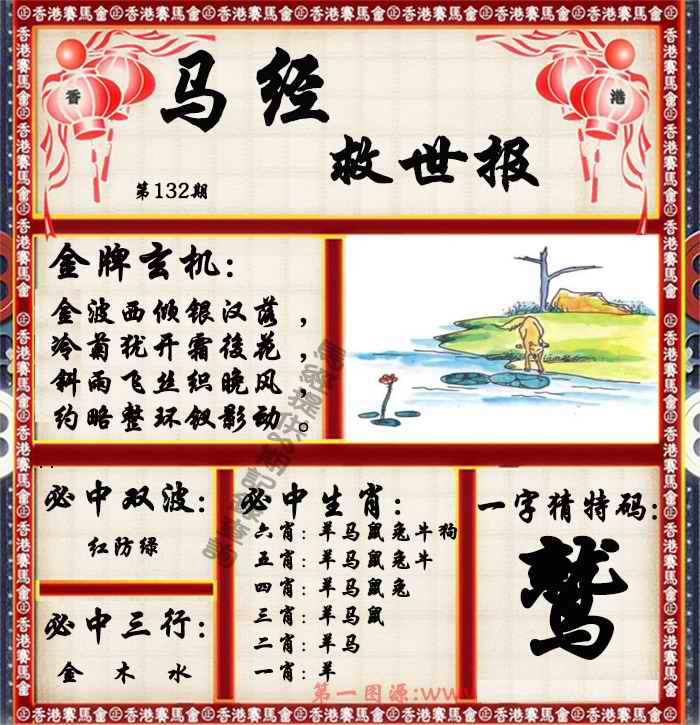 香港賽馬會㊣香港賽馬會㊣香港賽馬會㊣香港賽馬會㊣香港賽馬會㊣香港賽馬會
香
港
马经
救世报
第132期
金牌玄机：
金波西倾银汉落，
冷菊犹开霜後花，
斜雨飞丝织晚风，
约略整环钗影动。
必中双波：
红防绿
必中三行：
金 木 水
必中生肖：
六肖：羊马鼠兔牛狗
五肖：羊马鼠兔牛
四肖：羊马鼠兔
三肖：羊马鼠
二肖：羊马
一肖：羊
一字猜特码：
鹫
第一图源:www